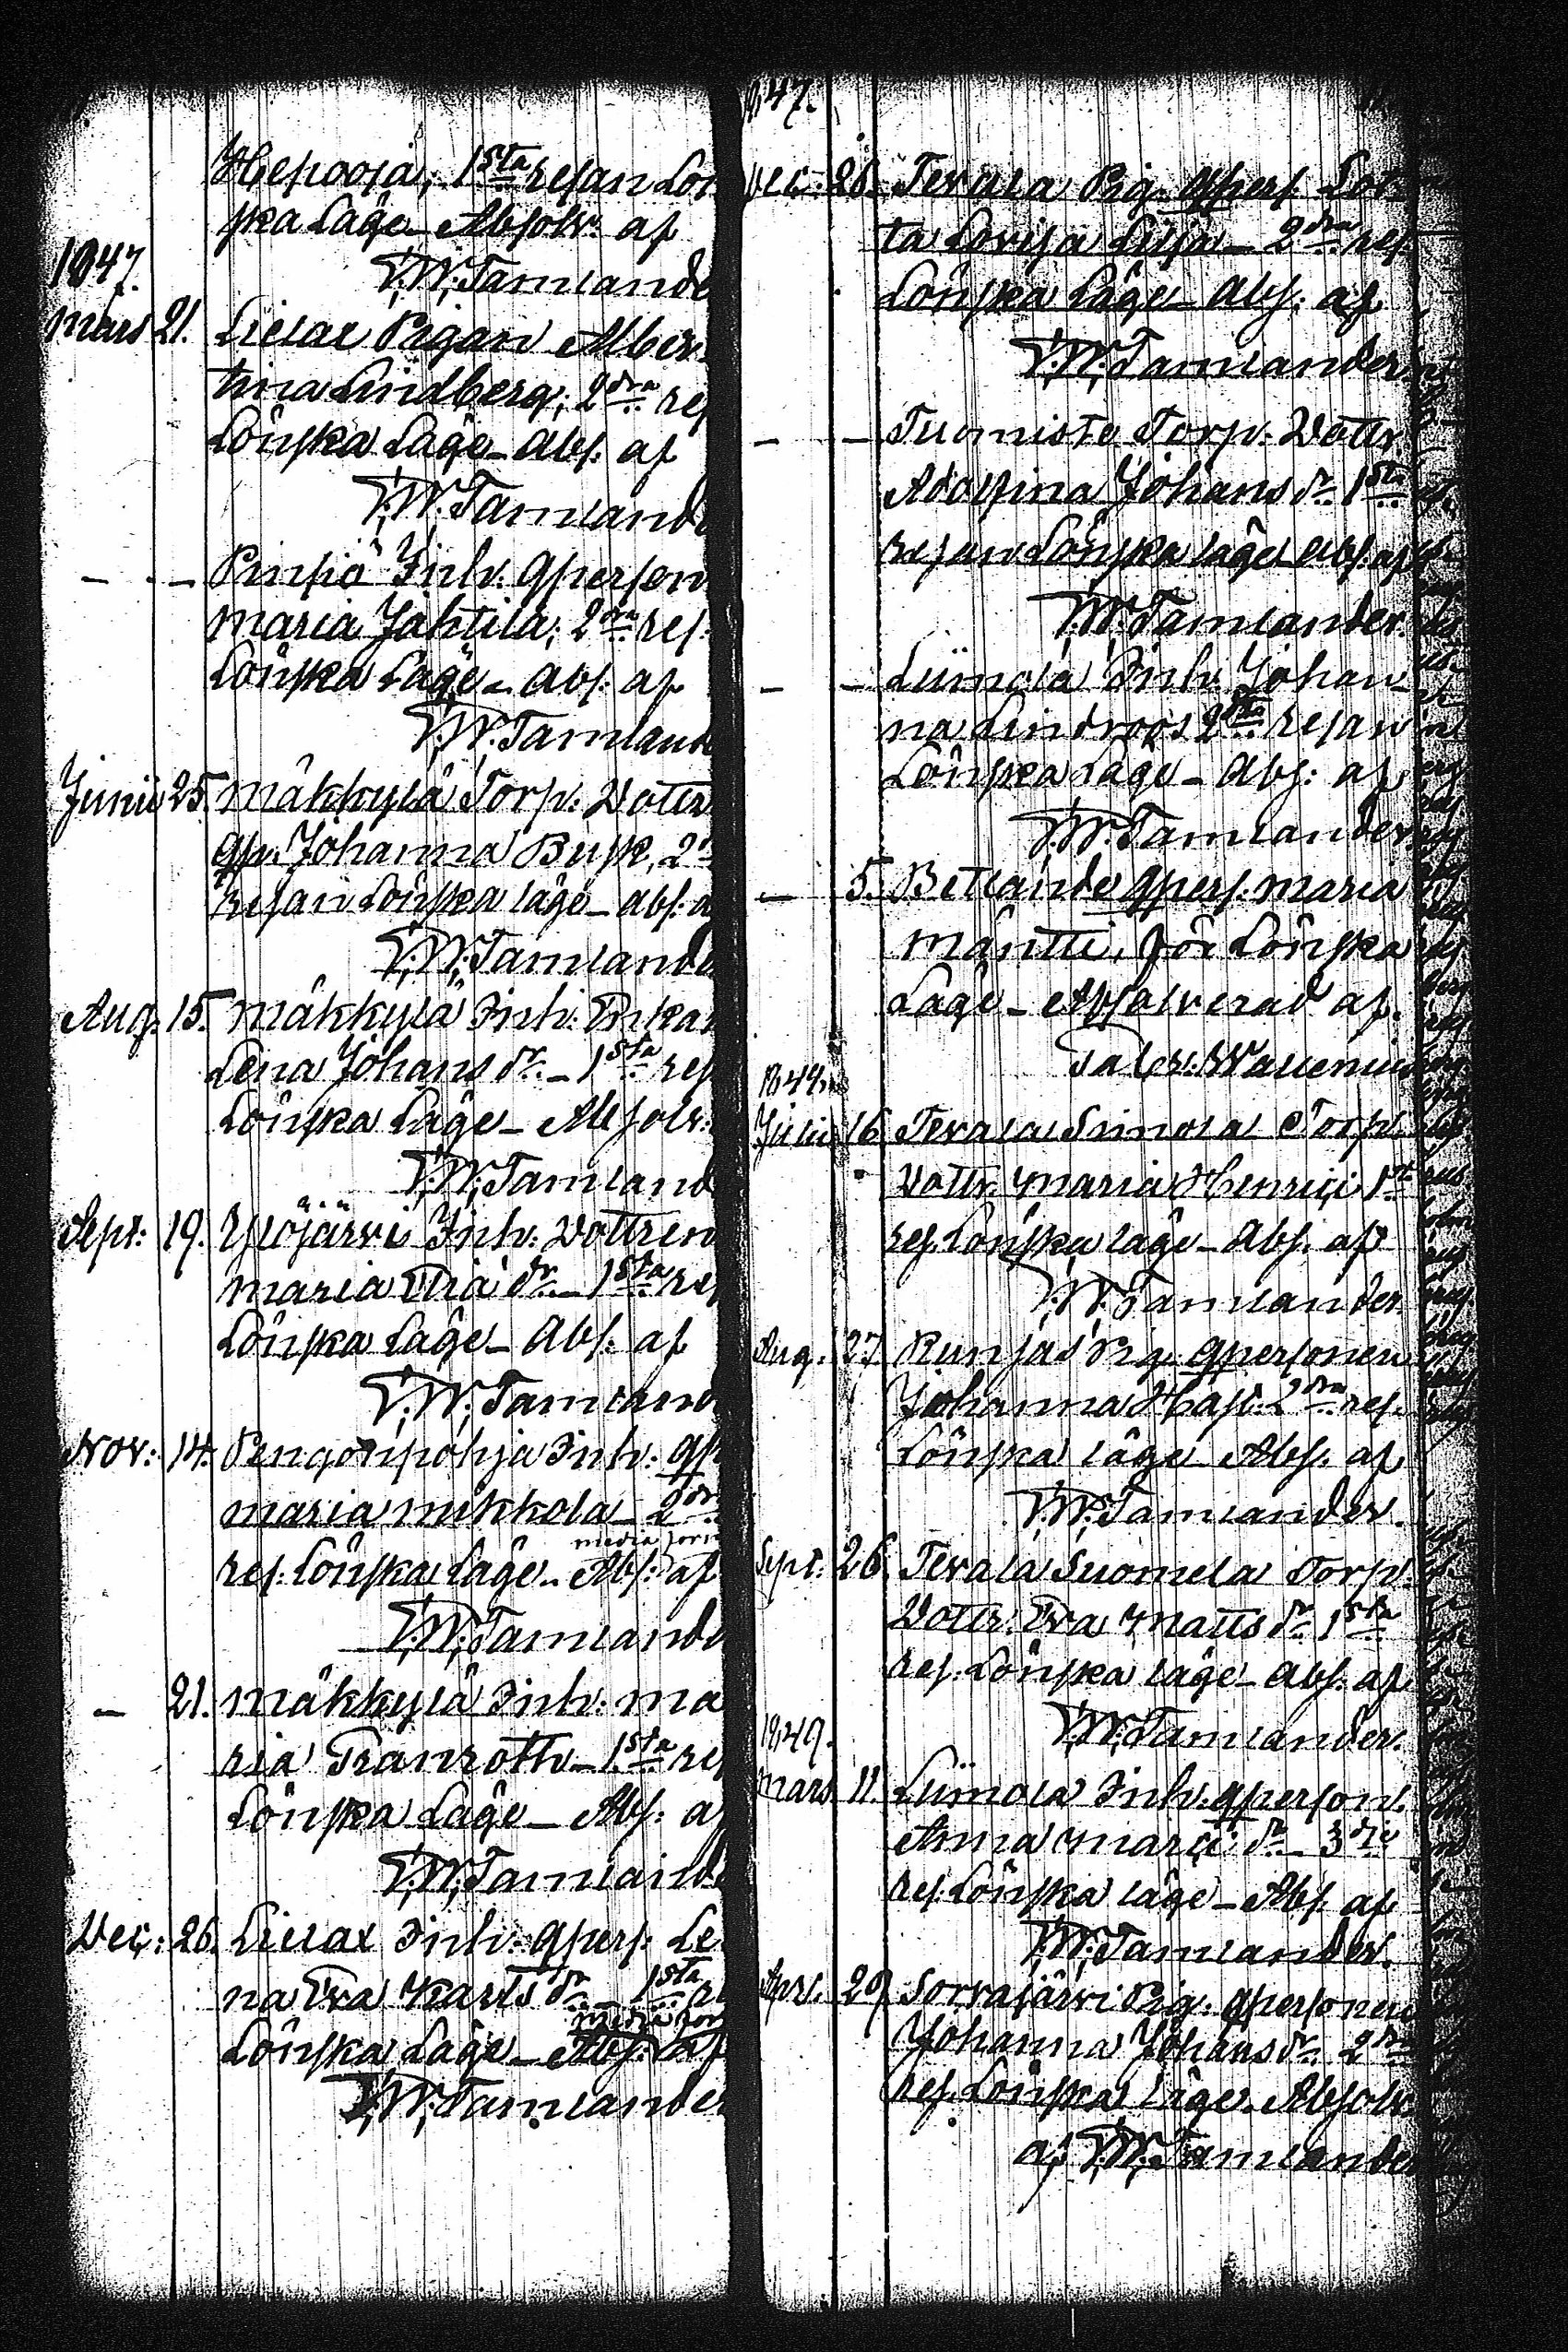 Hepooja, 1sta resan Lön
ska Läge Absolv: af
T.W. Tamlande
1847.
Mars 21. Lielax Pigan Alber-
tina Lindberg; 2dra res
Lönska Läge - Abs: af
T.W. Tamlande
— — Pinsiö Inh: Qperson
Maria Jahtila; 2dra res:
Lönska Läge - Abs: af
T.W. Tamland
Junii 25. Mäkkylä Torp: Dottr
Qp. Johanna Busk, 2
resan Lönska läge - abs: a
T.W. Tamlande
Aug: 15. Mäkkylä Inh: Enkan
Lena Johans dr. - 1sta res
Lönska Läge - Absolv:
T.W. Tamland
Sept: 19. Ylöjärvi Inh: Dottren
Maria dr. - 1sta res
Lönska Läge - Abs: af
T.W. Tamland
Nov: 14. Pengonpohja Inh: Qp
Maria Mikkola - 2dr
media
res: Lönska Läge - Abs: af
T.W. Tamlande
— 21. Mäkkylä Inh: Ma
ria Tranroth - 1sta re
Lönska Läge - Abs: a
T.W. Tamlande
Dec: 26. Lielax Inh: Qpers: Le
na Eva Karls dr - 1sta re
media
Lönska Läge - Abs: af
T.W. Tamlander
1847.
Dec: 26. Terala Pig. Qpers. Lov
ta Lovisa Lilja - 2dra res.
Lönska Läge - Abs: af
T.W. Tamlander.
— — Tuomisto Torp: Dottr
Adolfina Johans dr. 1sta
resan Lönska läge Abs: af
T.W. Tamlander.
— — Liimola Inh: Johan-
na Lindroos 2dra resan
Lönska Läge - Abs: af
T.W. Tamlander.
— 5. Betlande Qpers: Maria
Mäntti, för Lönska
Läge - Absolverad af.
Wallenius
1848.
Julii 16. Terala Simola Torp.
Dottr. Maria Henrici 1st
res. Lönska läge - Abs. af
T.W. Tamlander
Aug: 27. Runsas Pig. Qpersonen
Johanna 2dra res.
Lönska läge Abs. af
T.W. Tamlander.
Sept: 26. Terala Suomela Torp.
Dottr. Eva Matts dr 1sta
res. Lönska läge - Abs. af
T.W. Tamlander.
1849.
Mars 11. Liimola Inh: Qperson.
Anna dr - 3die
res. Lönska läge - Abs af
T.W. Tamlander.
Apr: 29. Sorvajärvi Pig. Qpersonen
Johanna Johans dr. 2dra
res. Lönska läge. Absolv.
af T.W. Tamlander